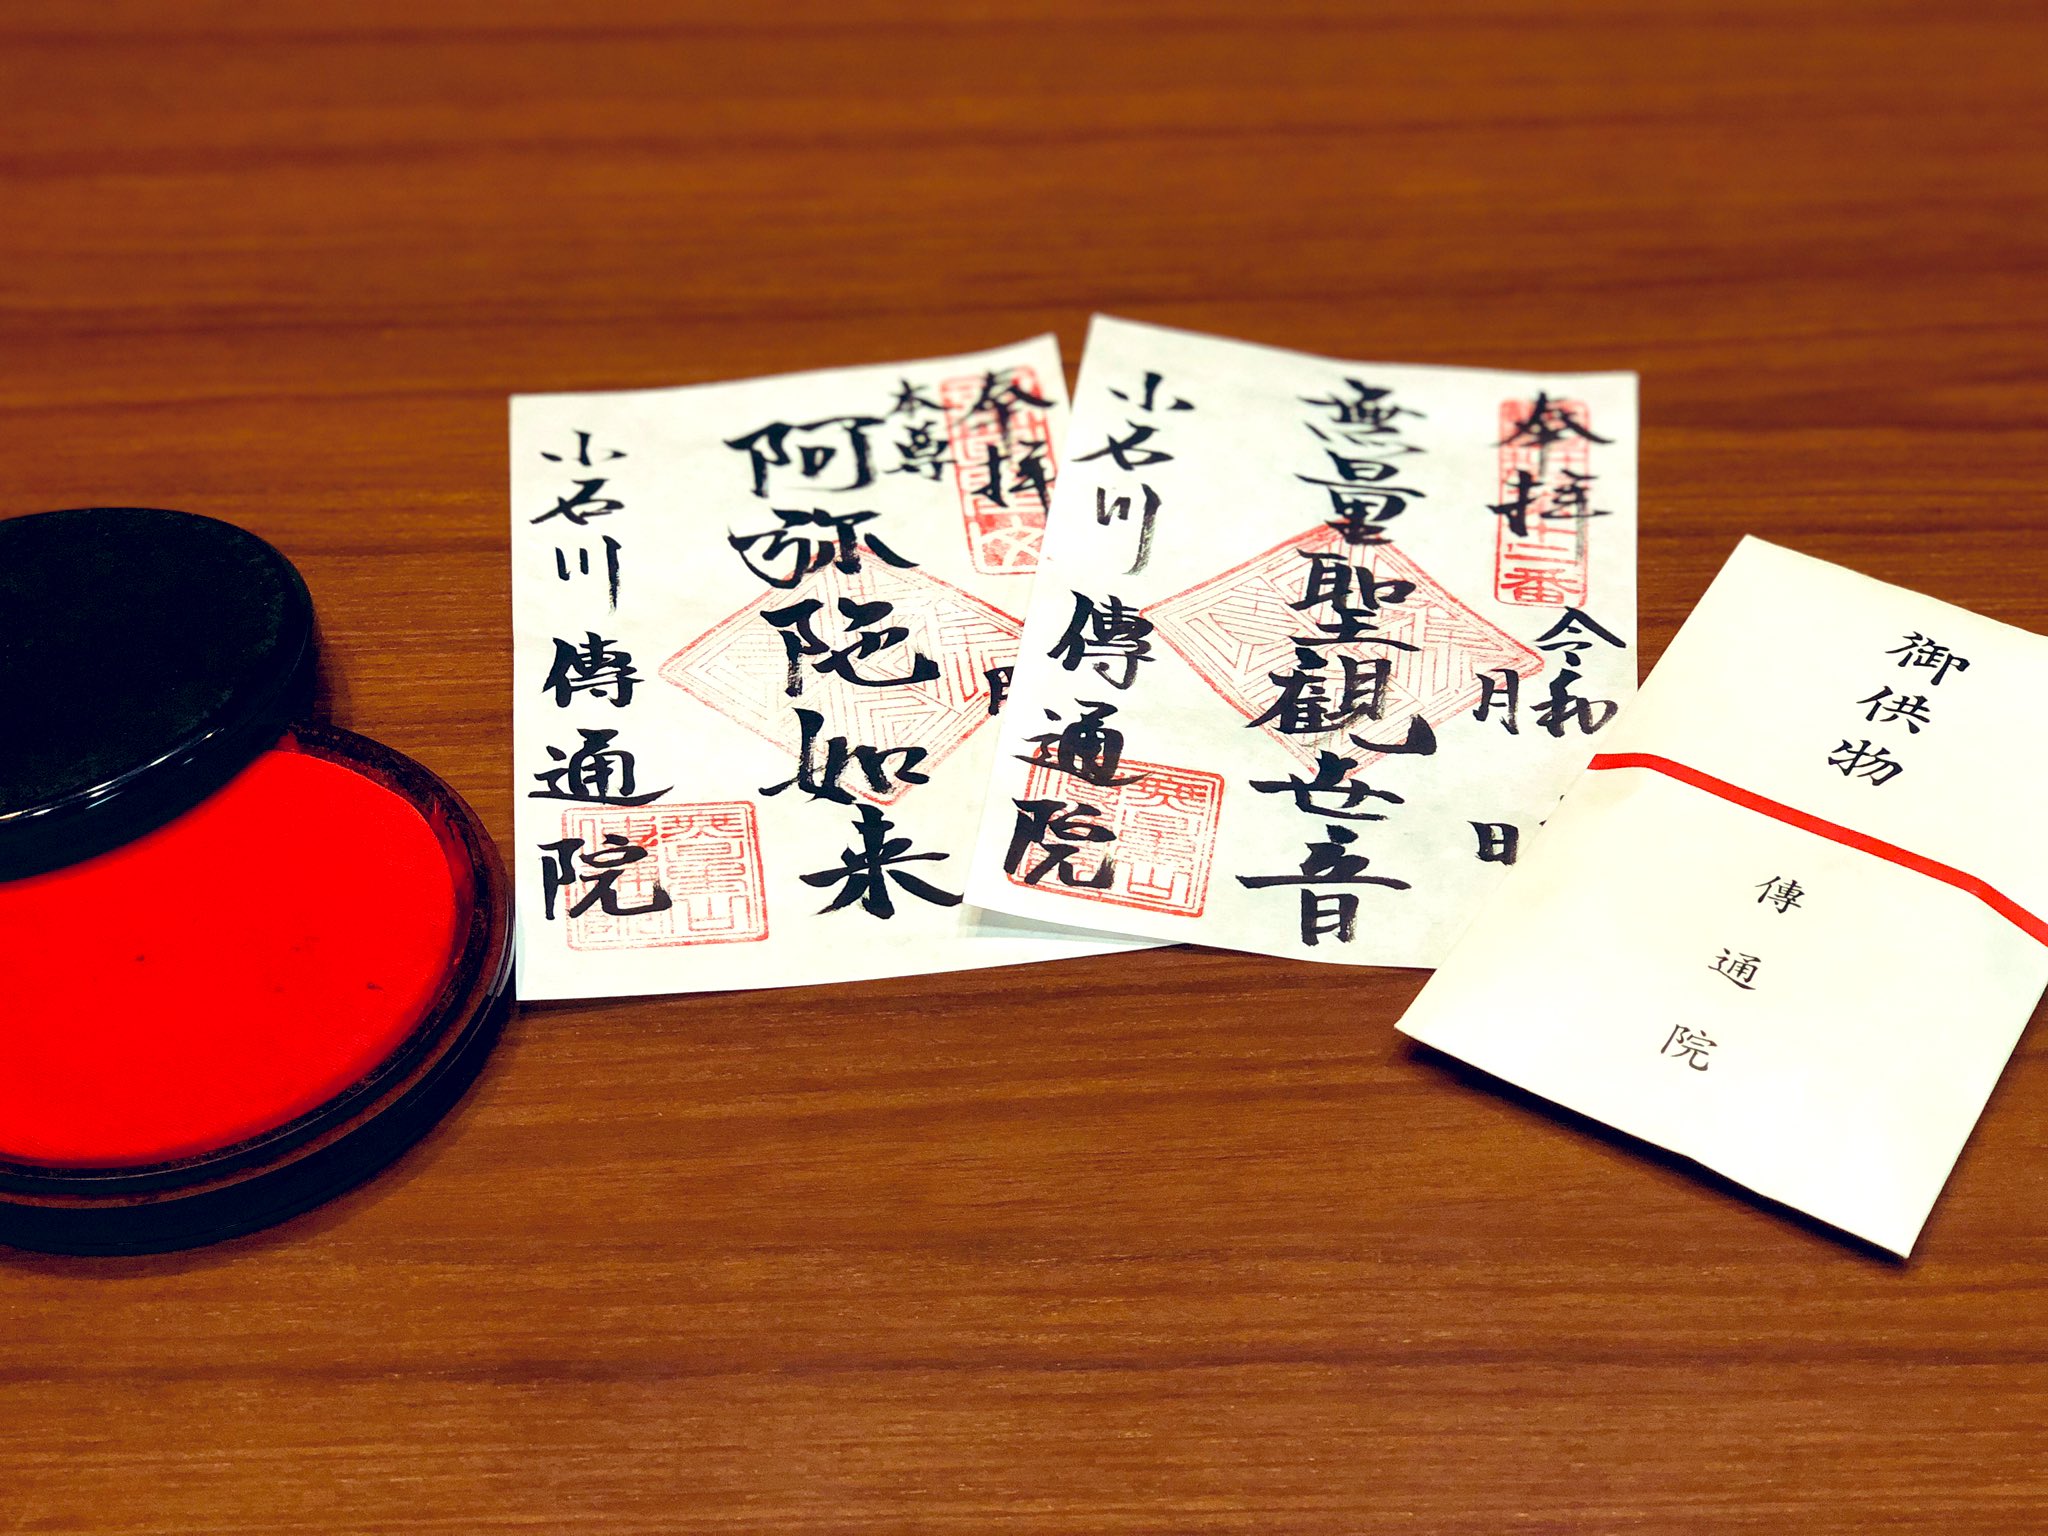 奉拝
本尊
阿弥陀如来
月
小石川 傳通院
奉拝
令和
月 日
無量聖観世音
小石川 傳通院
御供物
傳通院